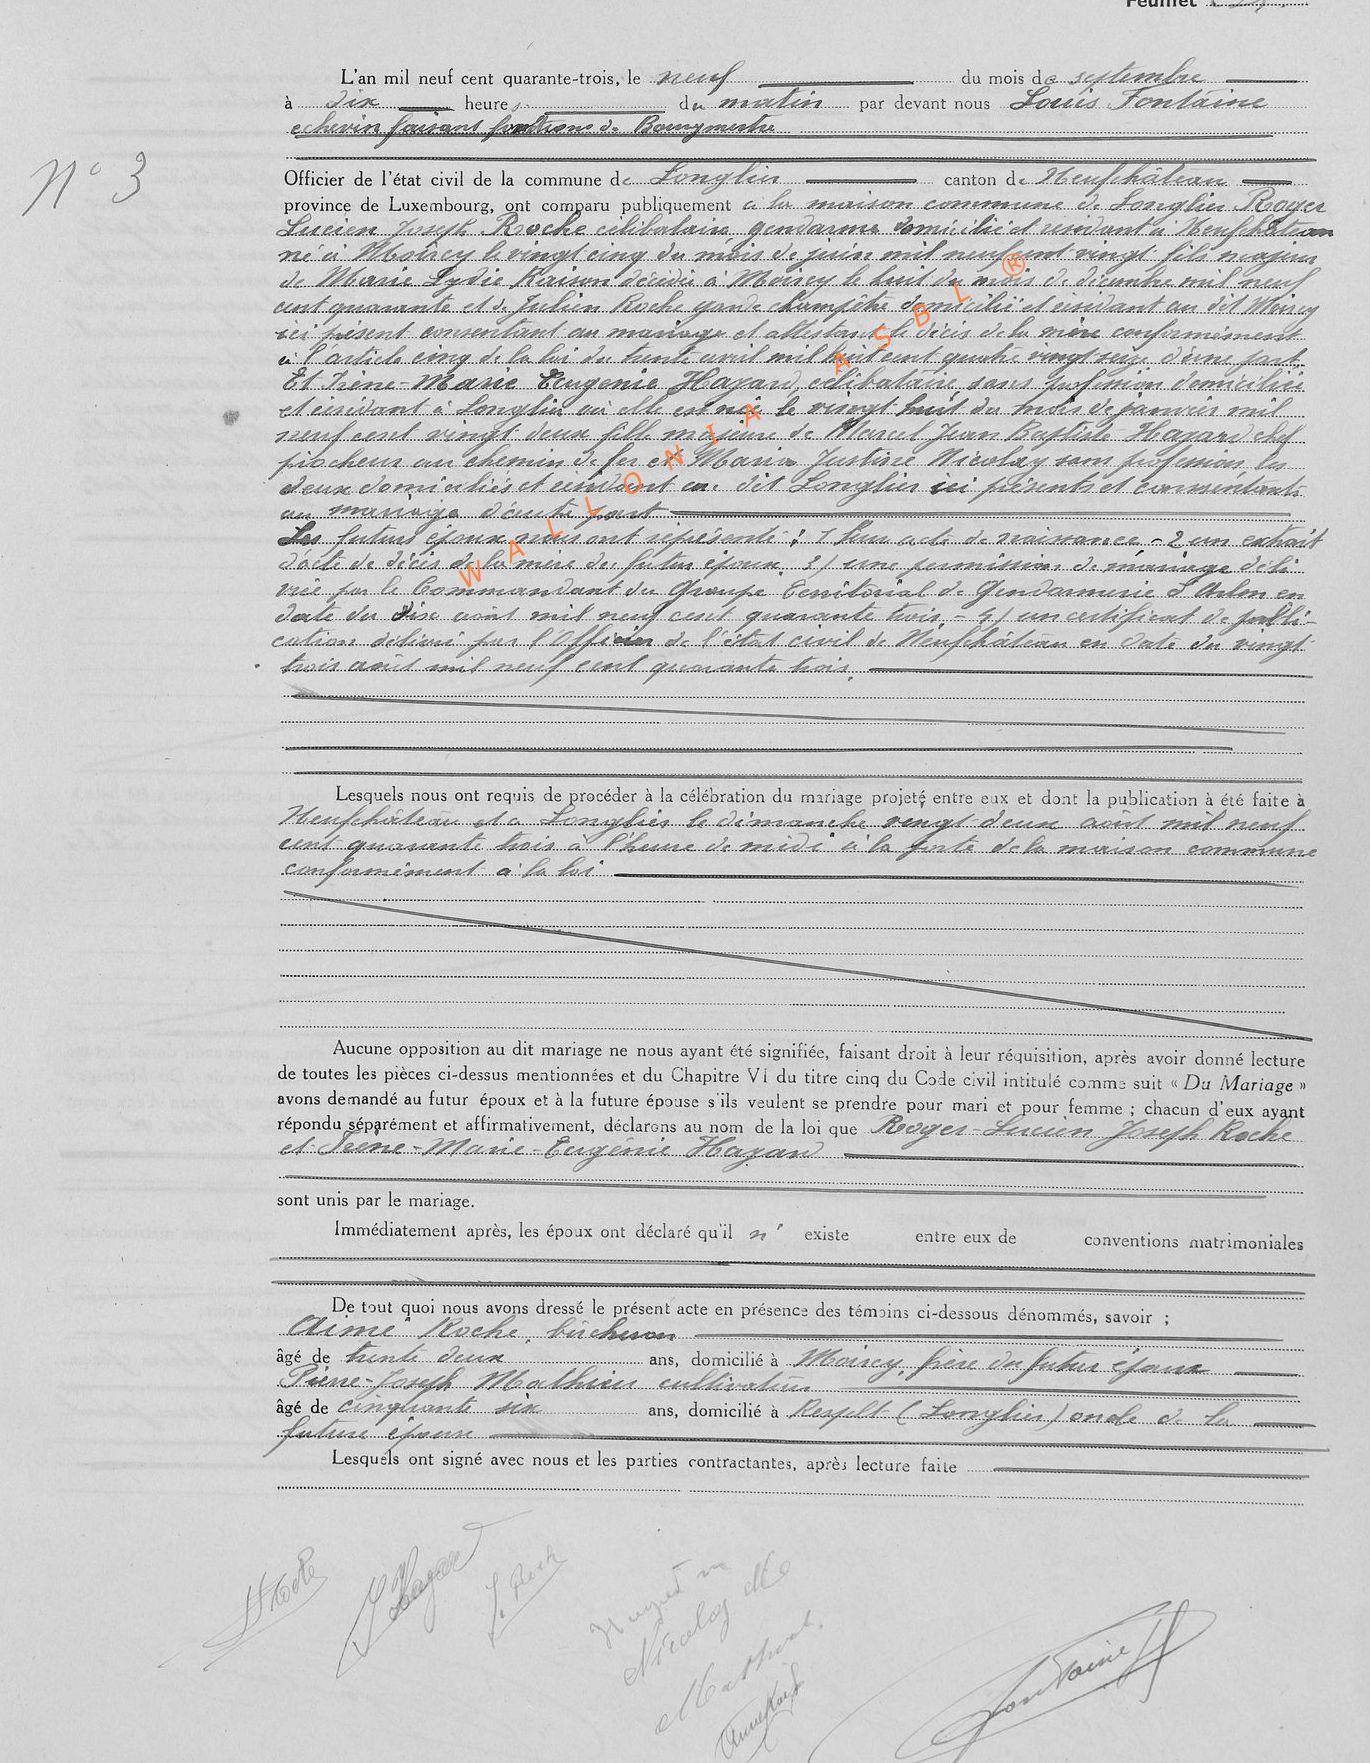 Feuillet
L'an mil neuf cent quarante-trois, le neuf du mois de septembre
à dix heures du matin par devant nous Louis Fontaine
echevin faisant fonctions de Bourgmestre
N° 3
Officier de l'état civil de la commune de Longlier canton de Neufchâteau
province de Luxembourg, ont comparu publiquement a la maison commune de Longlier Roger
Lucien Joseph Roche célibataire gendarme domicilié et résidant à Neufchâteau
né à Moircy le vingt cinq du mois de juin mil neuf cent vingt fils majeur
de Marie Lydie Raison décédée à Moircy le huit du mois de décembre mil neuf
cent quarante et de Julien Roche garde champêtre domicilié et résidant au dit Moircy
ici présent consentant au mariage et attestant le décès de la mère conformément
à l'article cinq de la loi du trente avril mil huit cent quatre vingt seize d'une part,
Et Irène-Marie Eugenie Hazard, célibataire, sans profession domiciliée
et résidant à Longlier où elle est née le vingt huit du mois de janvier mil
neuf cent vingt deux fille majeure de Marcel Jean Baptiste Hazard chef
piocheur au chemin de fer et Maria Justine Nicolay sans profession les
deux domiciliés et résidant au dit Longlier ici présents et consentants
au mariage d'autre part
Les futurs époux nous ont représenté : 1 leur acte de naissance - 2 un extrait
d'acte de décès de la mère du futur époux. 3/ une permission de mariage déli
vrée par le Commandant du Groupe Territorial de Gendarmerie d'Arlon en
date du dix août mil neuf cent quarante trois - 4/ un certificat de publi-
cation délivré par l'Officier de l'état civil de Neufchâteau en date du vingt
trois août mil neuf cent quarante trois.
WALLONIA ASBL ®
Lesquels nous ont requis de procéder à la célébration du mariage projeté entre eux et dont la publication à été faite à
Neufchâteau et a Longlier le dimanche vingt deux août mil neuf
cent quarante trois à l'heure de midi à la porte de la maison commune
conformément à la loi
Aucune opposition au dit mariage ne nous ayant été signifiée, faisant droit à leur réquisition, après avoir donné lecture
de toutes les pièces ci-dessus mentionnées et du Chapitre VI du titre cinq du Code civil intitulé comme suit « Du Mariage »
avons demandé au futur époux et à la future épouse s'ils veulent se prendre pour mari et pour femme ; chacun d'eux ayant
répondu séparément et affirmativement, déclarons au nom de la loi que Roger-Lucien Joseph Roche
et Irène-Marie-Eugénie Hazard
sont unis par le mariage.
Immédiatement après, les époux ont déclaré qu'il n' existe entre eux de conventions matrimoniales
De tout quoi nous avons dressé le présent acte en présence des témoins ci-dessous dénommés, savoir ;
Aimé Roche, bûcheron
âgé de trente deux ans, domicilié à Moircy, frère du futur époux
Pierre-Joseph Mathieu cultivateur
âgé de cinquante six ans, domicilié à Respelt (Longlier) oncle de la
future épouse
Lesquels ont signé avec nous et les parties contractantes, après lecture faite
Roche
Hazard
J. Roche
Nicolay
Fontaine